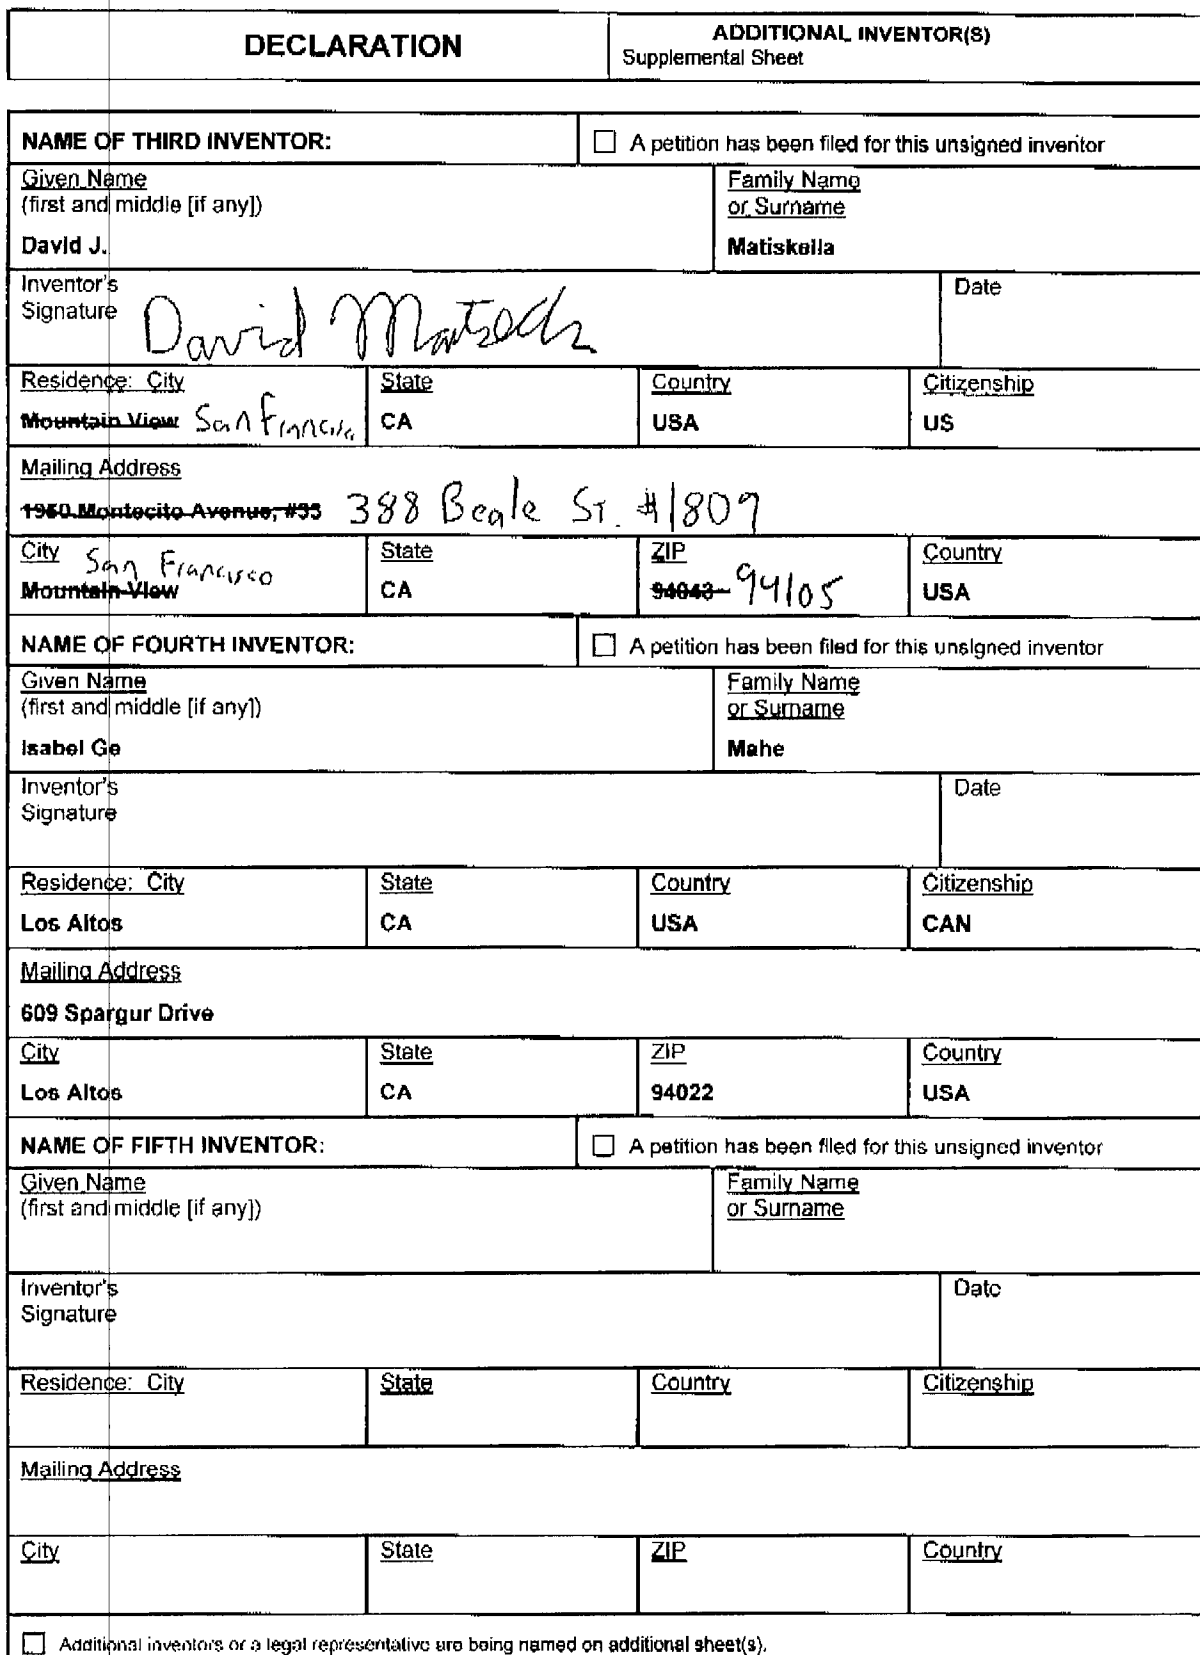 DECLARATION
ADDITIONAL INVENTOR(S)
Supplemental Sheet
NAME OF THIRD INVENTOR:
A petition has been filed for this unsigned inventor
Given Name
(first and middle [if any])
David J.
Family Name
or Surname
Matiskella
Inventor's
Signature
David
Date
Residence: City
Mountain View San Francisco
State
CA
Country
USA
Citizenship
US
Mailing Address
1950 Montecito Avenue, #33 388 Beale St. #1809
City San Francisco
Mountain View
State
CA
ZIP
94043 94105
Country
USA
NAME OF FOURTH INVENTOR:
A petition has been filed for this unsigned inventor
Given Name
(first and middle [if any])
Isabel Ge
Family Name
or Surname
Mahe
Inventor's
Signature
Date
Residence: City
Los Altos
State
CA
Country
USA
Citizenship
CAN
Mailing Address
609 Spargur Drive
City
Los Altos
State
CA
ZIP
94022
Country
USA
NAME OF FIFTH INVENTOR:
A petition has been filed for this unsigned inventor
Given Name
(first and middle [if any])
Family Name
or Surname
Inventor's
Signature
Date
Residence: City
State
Country
Citizenship
Mailing Address
City
State
ZIP
Country
Additional inventors or a legal representative are being named on additional sheet(s).